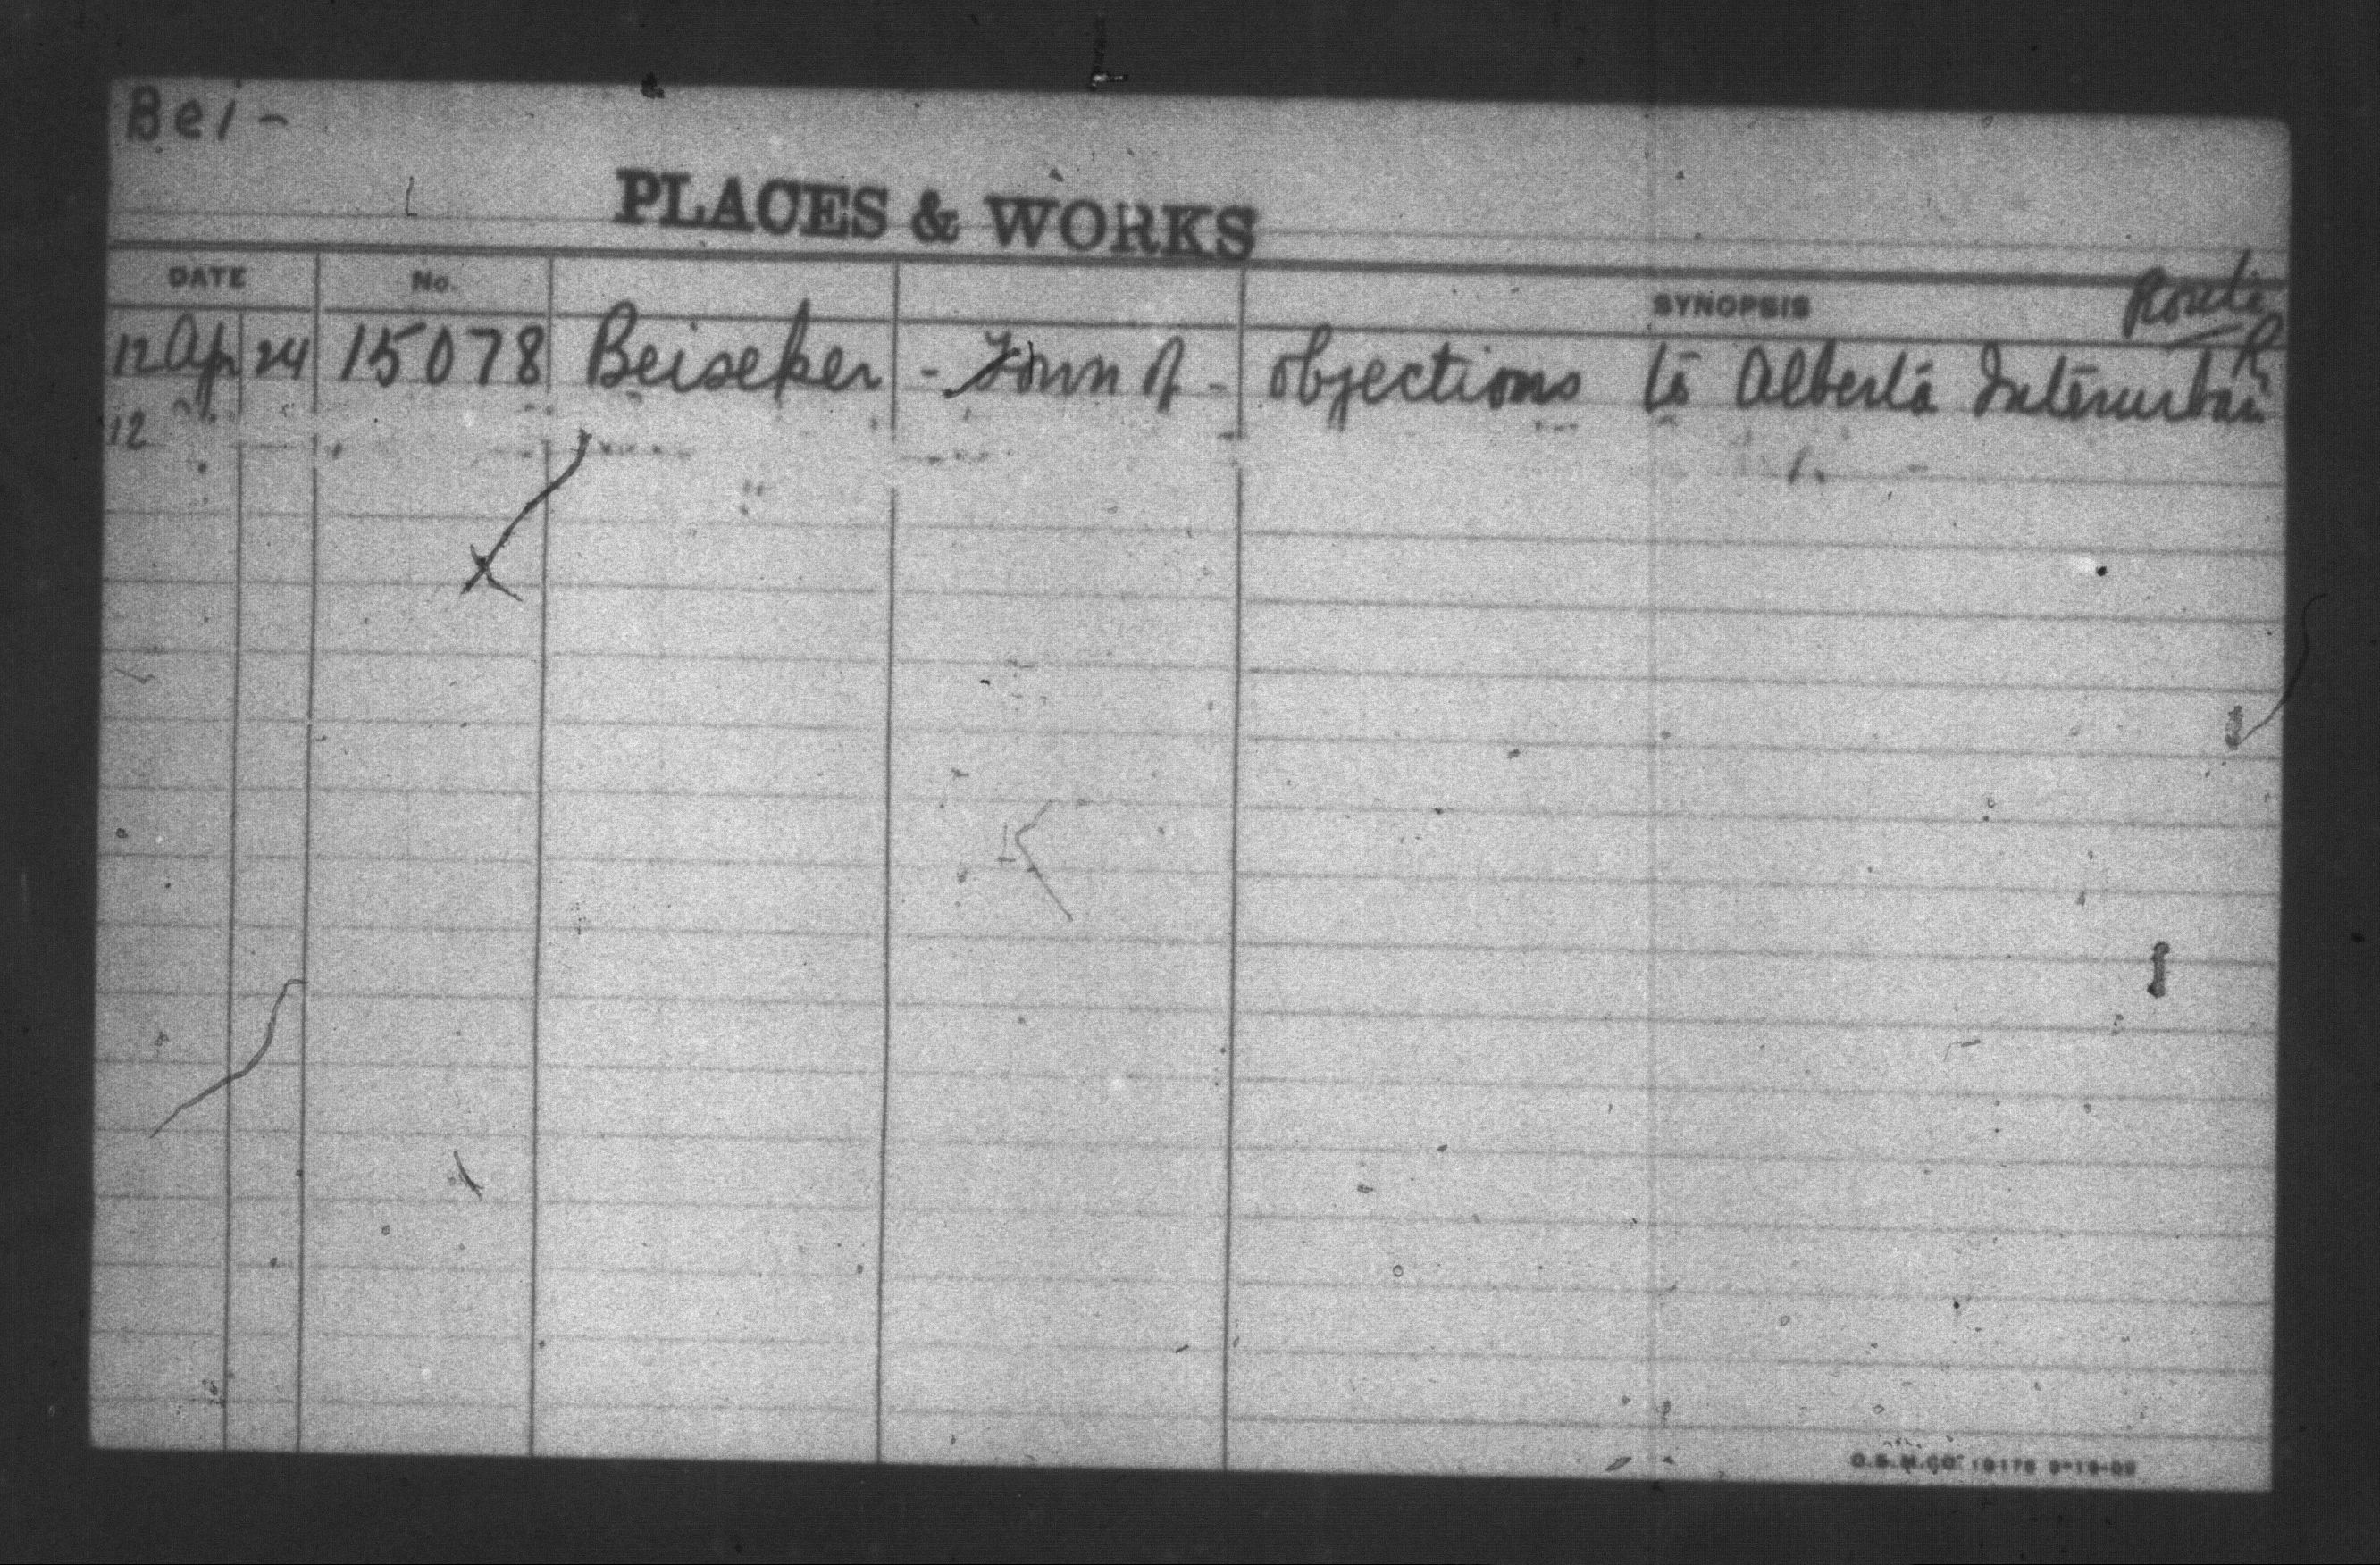 Bei-
PLACES & WORKS
DATE No. SYNOPSIS Route
12 Apr 24 15078 Beiseker - Town of - objections to Alberta Interurban R
12